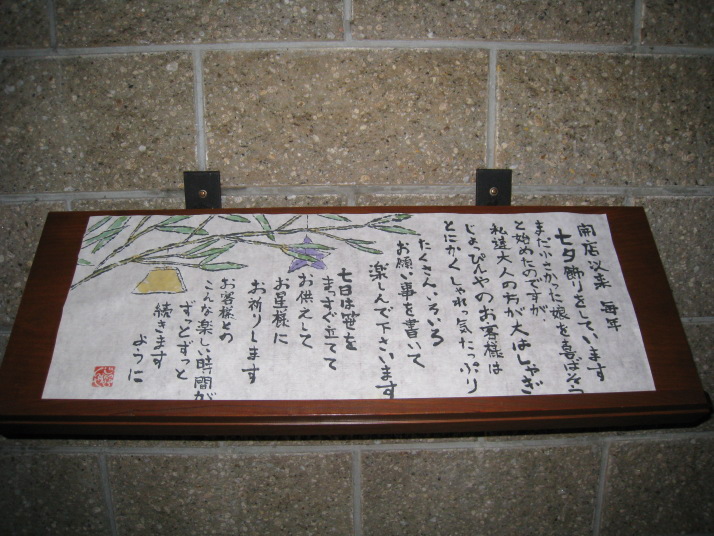 開店以来 毎年
七夕飾りをしています
まだ小さかった娘を喜ばそう
と始めたのですが、
私達大人の方が大はしゃぎ
じょっぴんやのお客様は
とにかくしゃれっ気たっぷり
たくさんいろいろ
お願い事を書いて
楽しんで下さいます
七日は笹を
まっすぐ立てて
お供えして
お星様に
お祈りします
お客様との
こんな楽しい時間が
ずっとずっと
続きます
ように